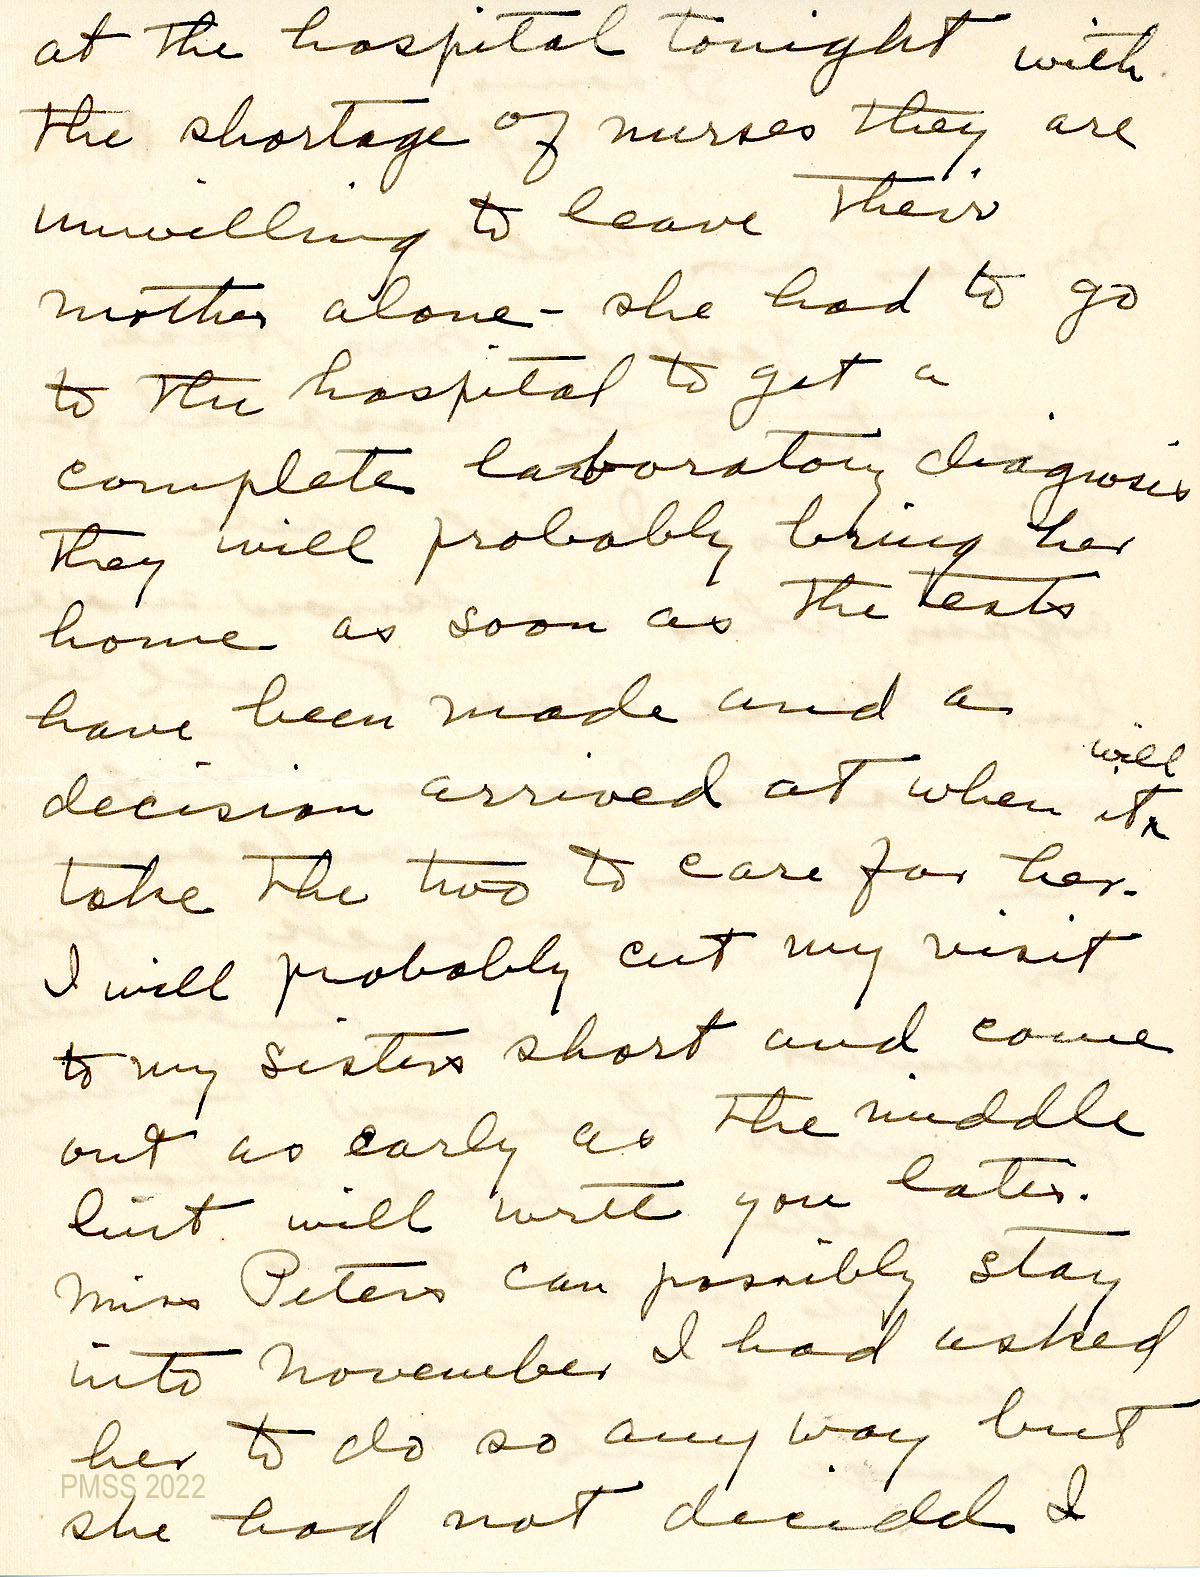 at the hospital tonight with
the shortage of nurses they are
unwilling to leave their
mother alone - she had to go
to the hospital to get a
complete laboratory diagnosis
they will probably bring her
home as soon as the tests
have been made and a
will
decision arrived at when it^
take the two to care for her.
I will probably cut my visit
to my sisters short and come
out as early as the middle
but will write you later.
Miss Peters can possibly stay
into November I had asked
her to do so any way but
PMSS 2022
she had not decidd I